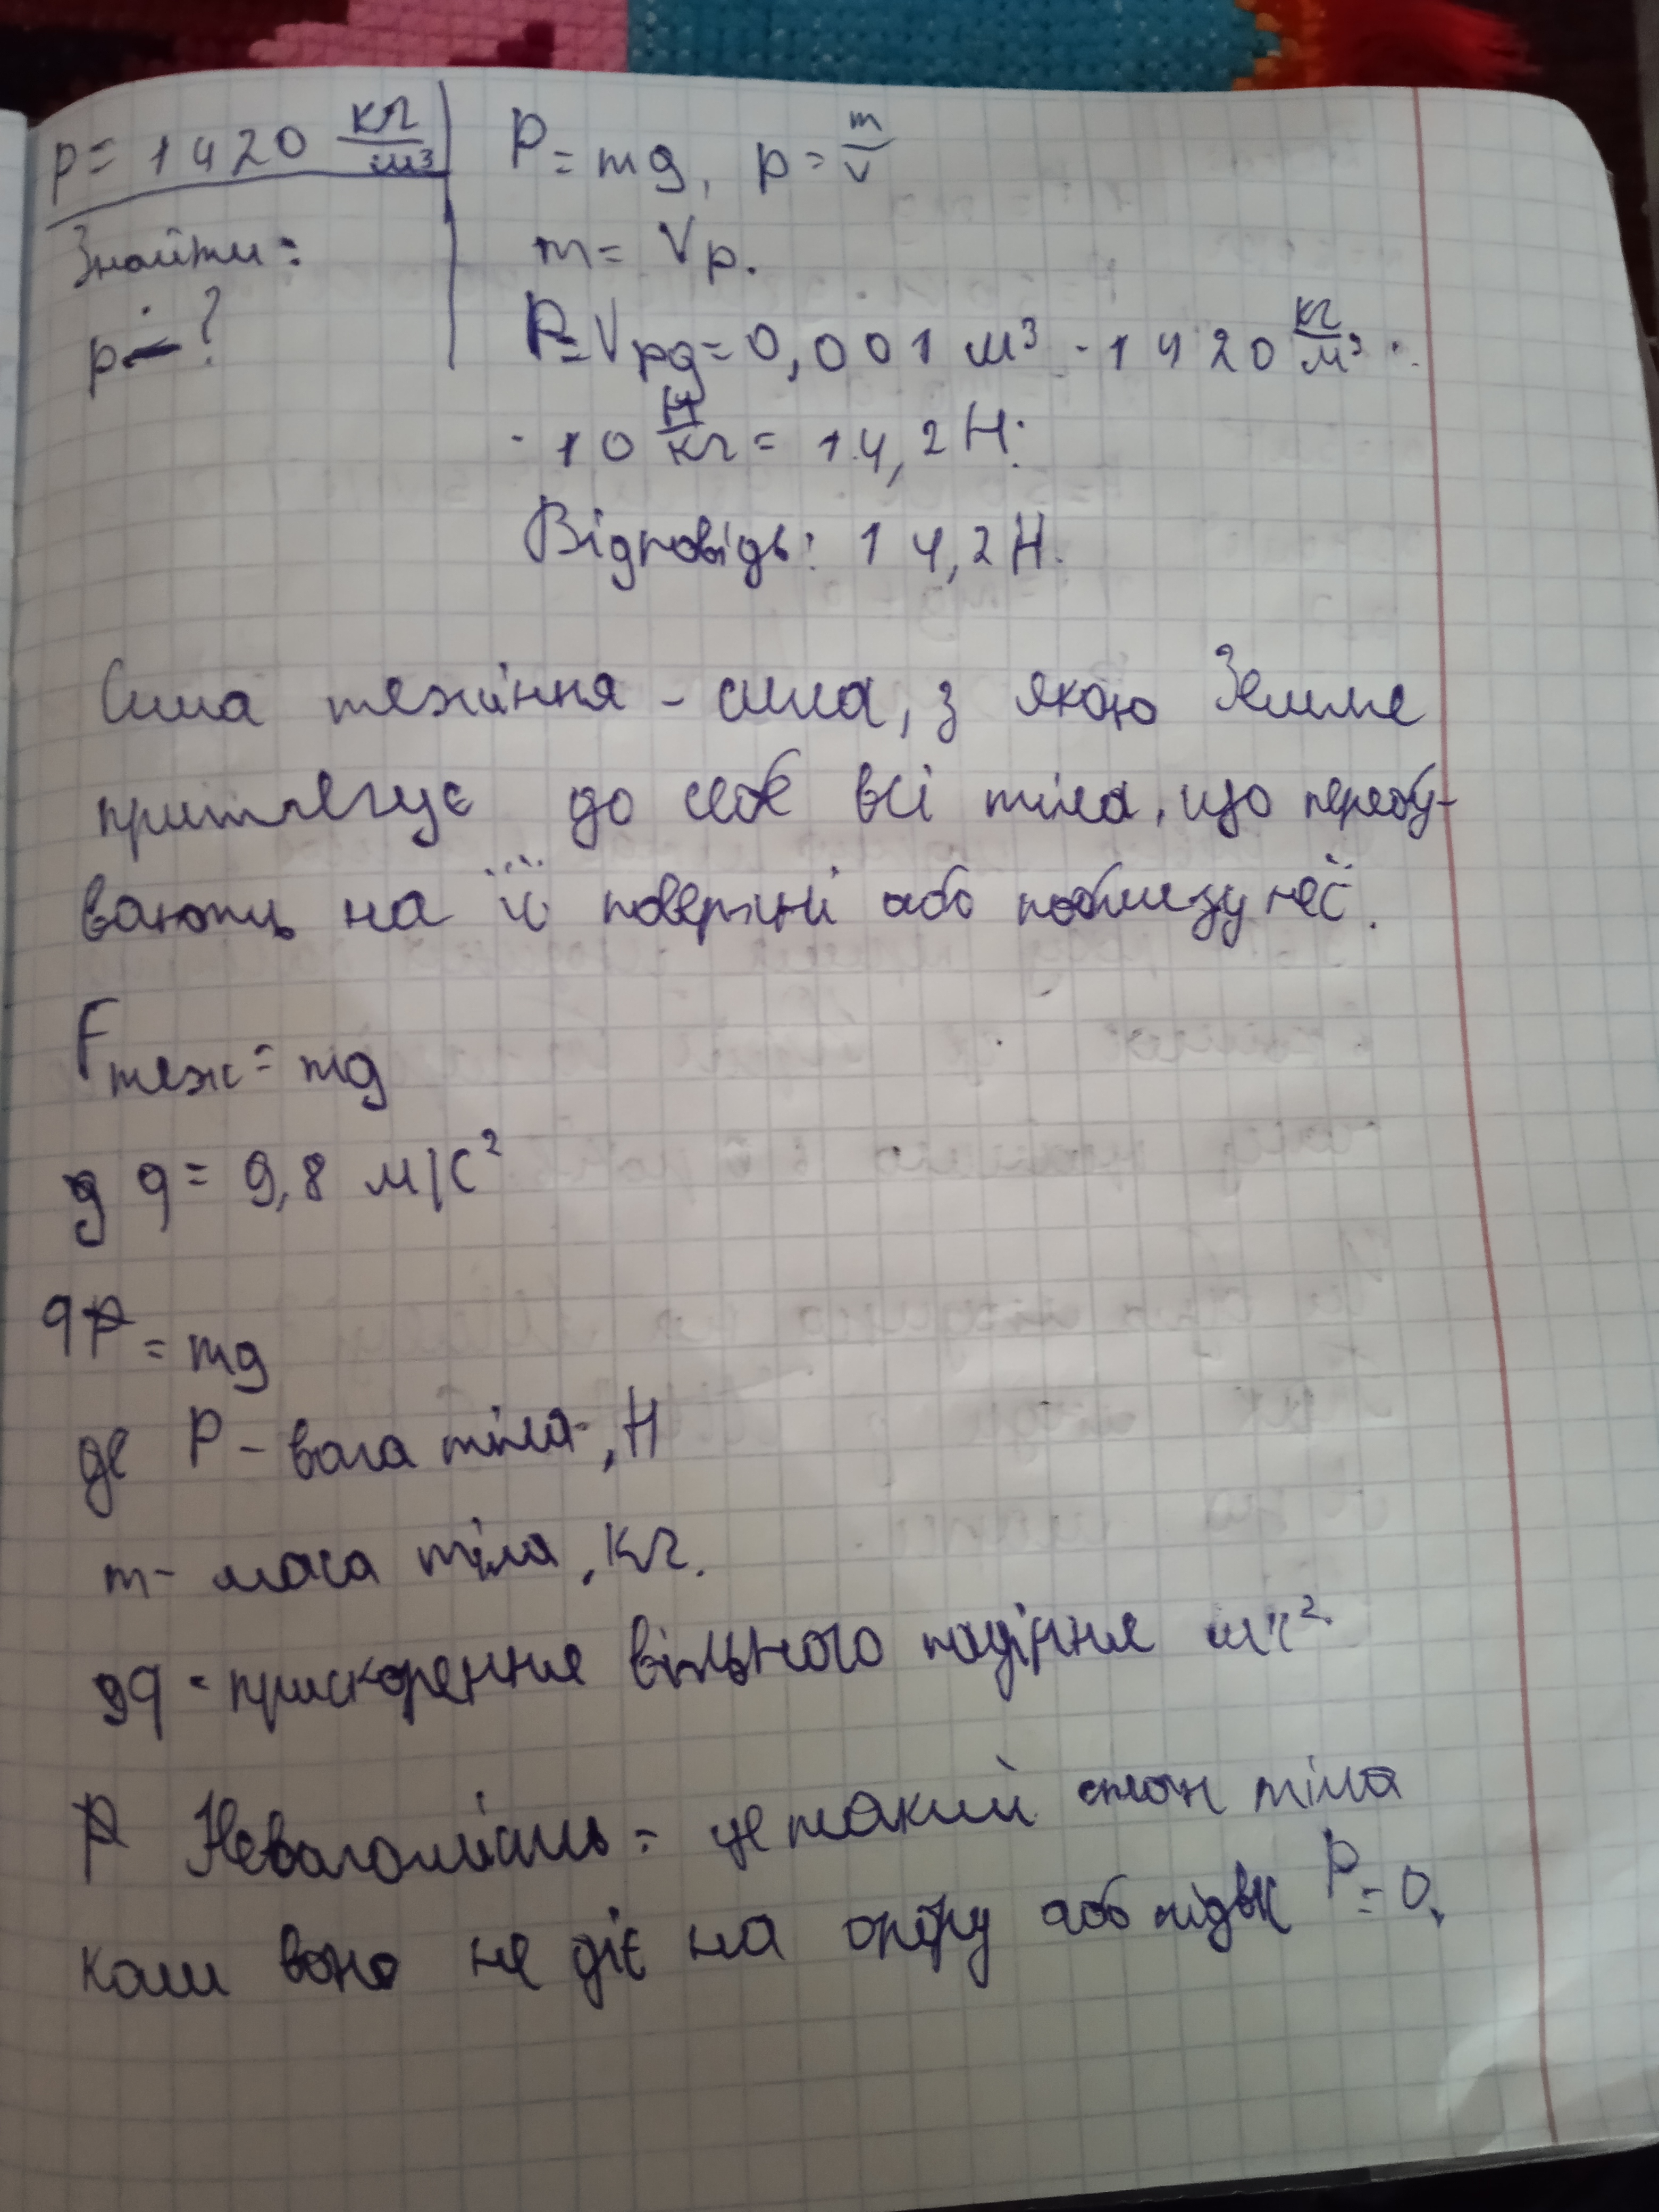 p = 1420 кг/м³
Знайти:
p - ?
P = mg, p = m/v
m = Vp.
P = Vpg = 0,001 м³ · 1420 кг/м³ ·
· 10 Н/кг = 14,2 Н.
Відповідь: 14,2 Н.
Сила тяжіння - сила, з якою Земля
притягує до себе всі тіла, що перебу-
вають на її поверхні або поблизу неї.
Fтяж = mg
g g = 9,8 м/с²
P = mg
де P - вага тіла, Н
m - маса тіла, кг.
g - прискорення вільного падіння м/с²
Невагомість - це такий стан тіла
коли воно не діє на опору або підвіс P = 0.